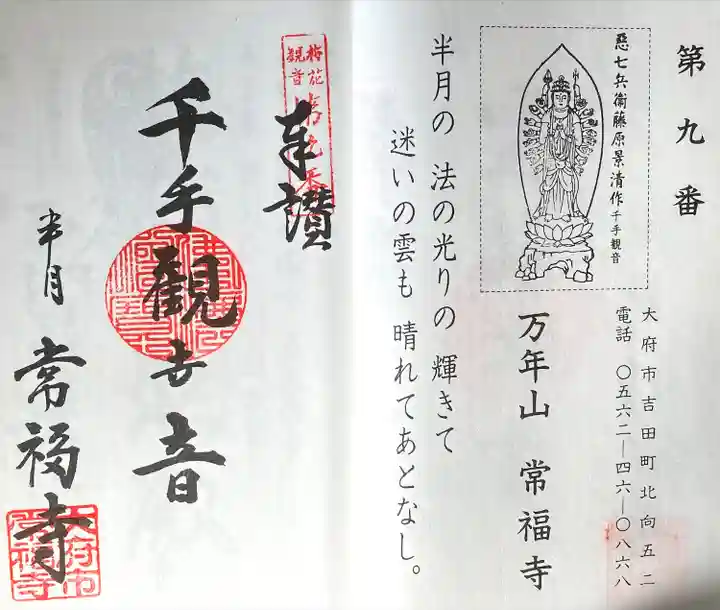 第九番
惡七兵衛藤原景清作千手観音
大府市吉田町北向五二
電話 〇五六二―四六―〇八六八
万年山 常福寺
半月の 法の光りの 輝きて
迷いの雲も 晴れてあとなし。
梅花
観音
第九番
奉讃
千手観世音
半月 常福寺
大府市
常福寺